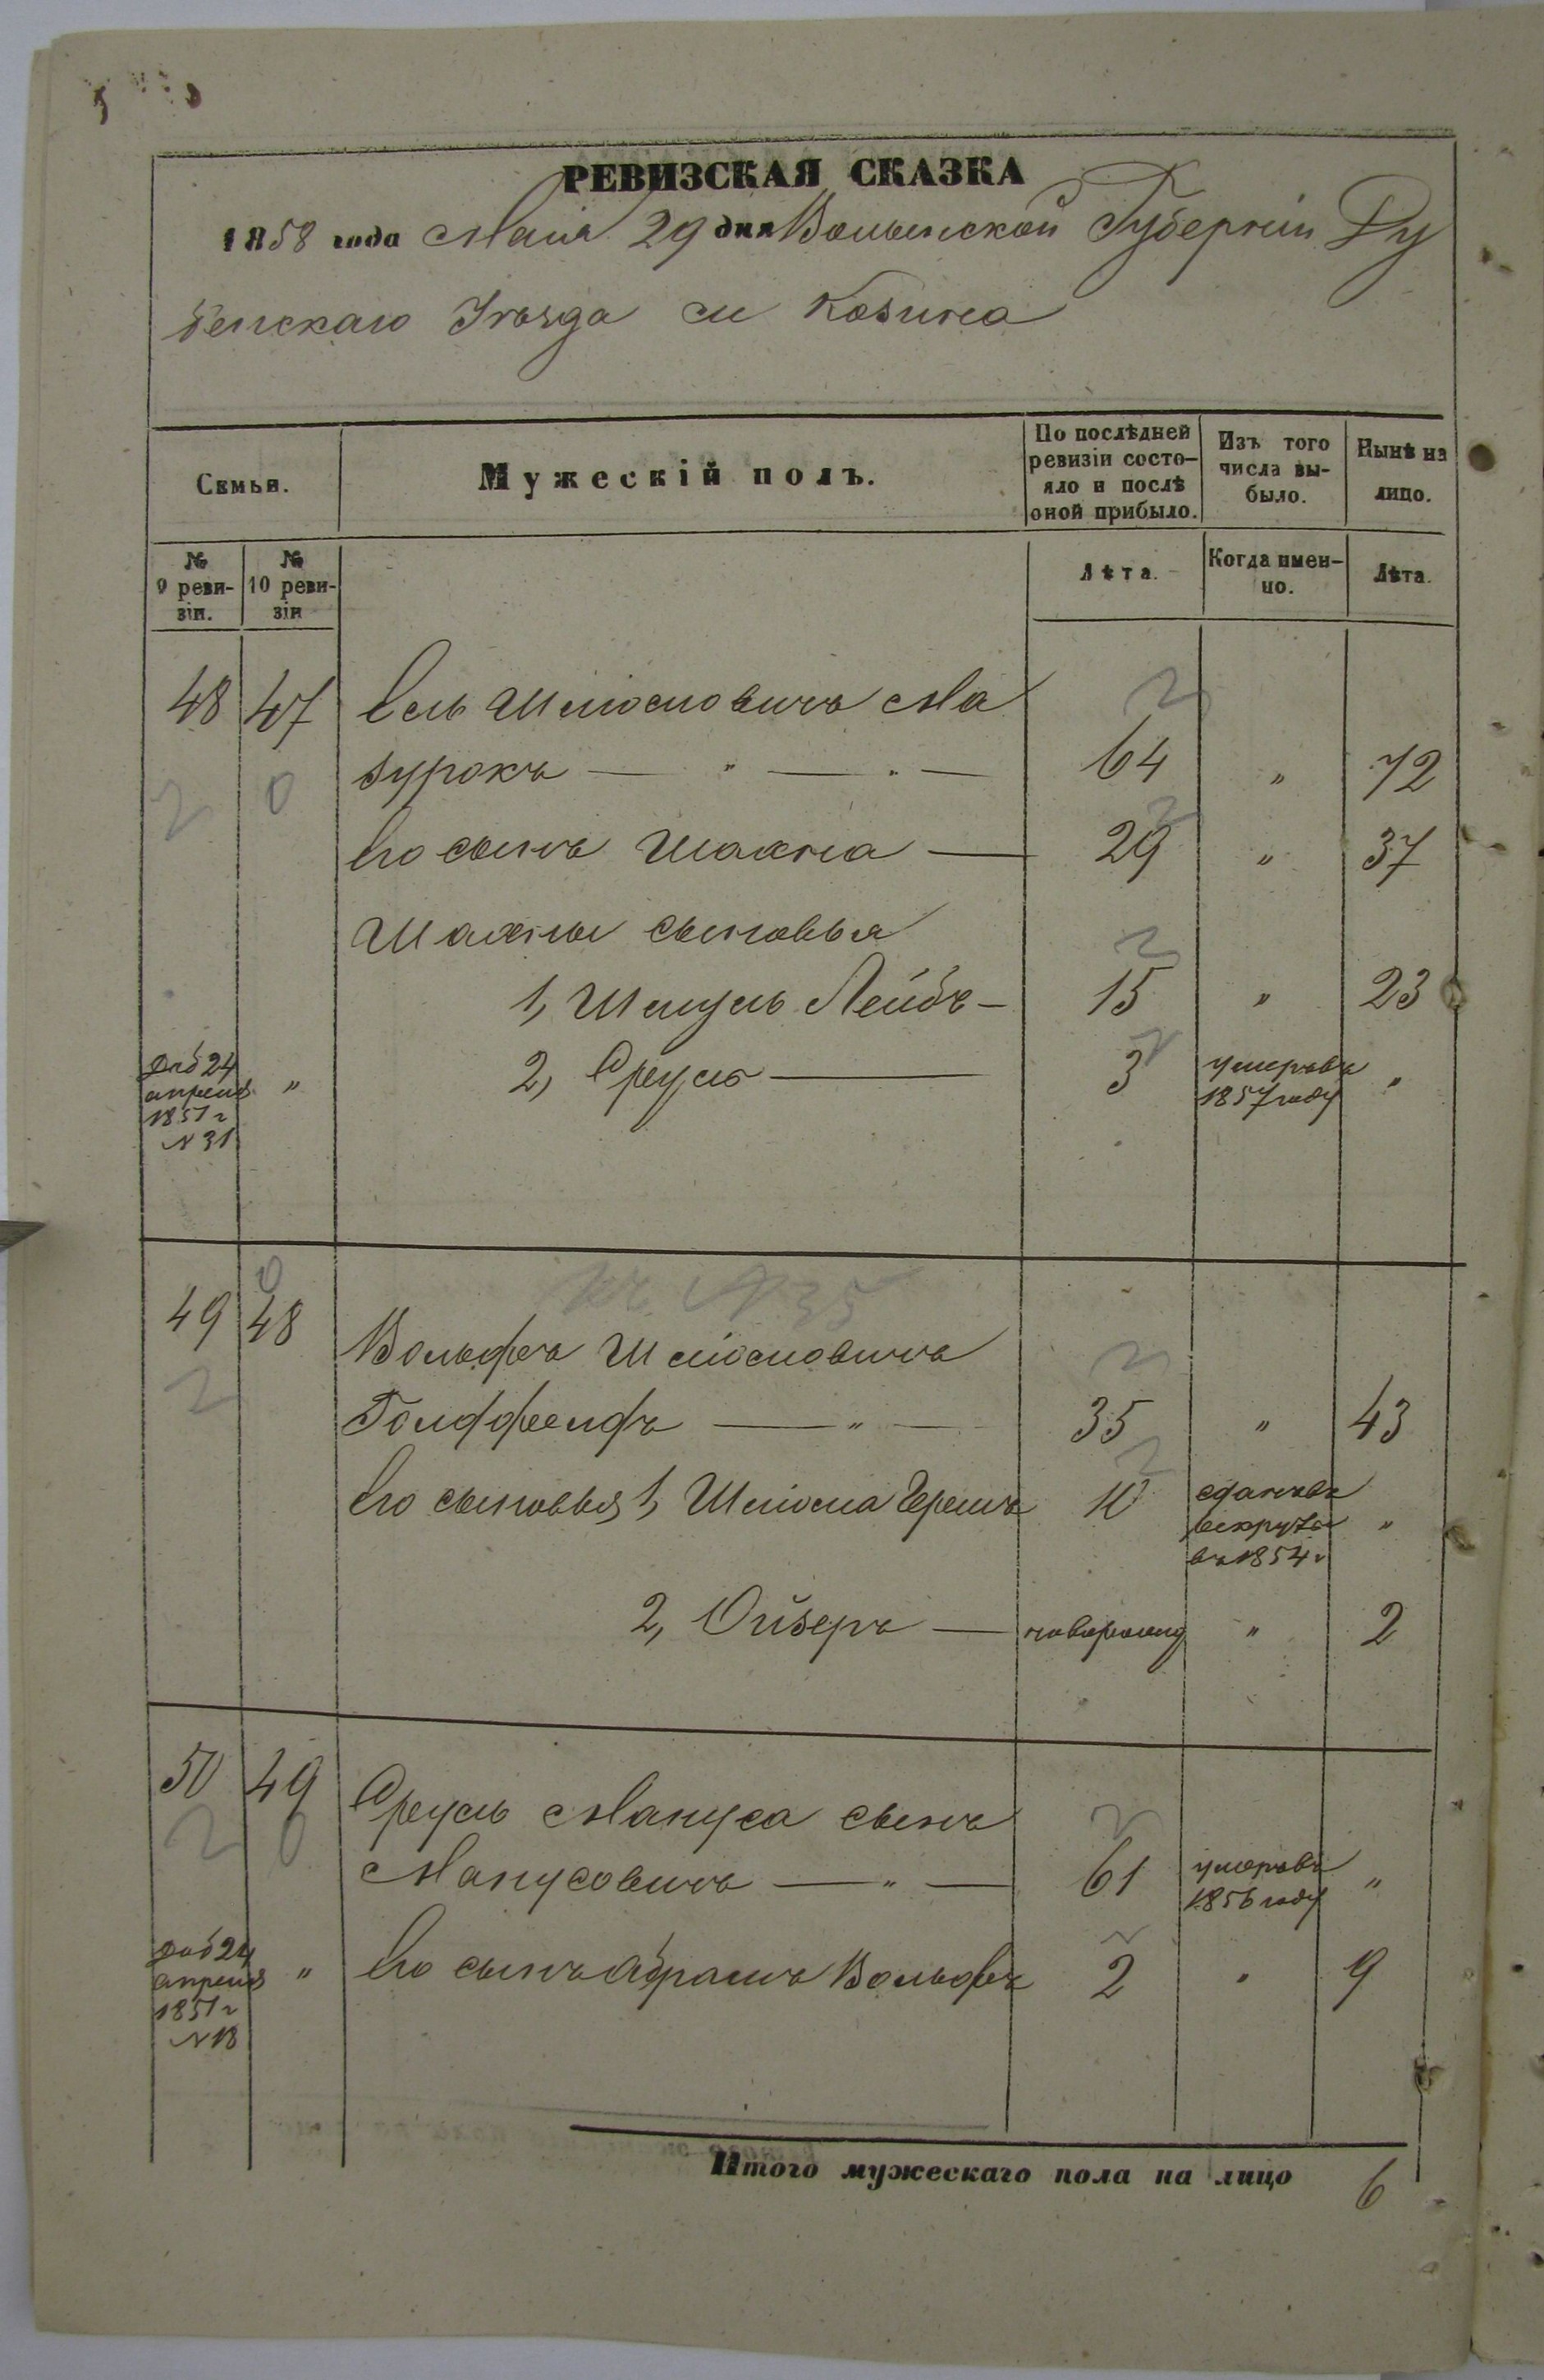 РЕВИЗСКАЯ СКАЗКА
1858 года Маія 29 дня Волынской Губерніи Ду
бенскаго Уѣзда м Козина
Семьи.
Мужескій полъ.
По послѣдней ревизіи состо-
яло и послѣ оной прибыло.
Изъ того числа вы-
было.
Нынѣ на лицо.
№ 9 реви-
зіи.
№ 10 реви-
зіи
Лѣта.
Когда имен-
но.
Лѣта.
48 47 Іось Шліомовичъ Ма
зурокъ — „ — „ — 64 „ 72
Его сынъ Шахна — 29 „ 37
Шахны сыновья
1, Шмуль Лейбъ — 15 „ 23
доб 24 апреля 1851 г N 31 „ 2, Сруль — 3 умеръ въ 1857 году „
къ N 35
49 48 Вольфъ Шліомовичъ
— „ — 35 „ 43
Его сыновья 1, Шліома Гершъ 10 сданъ въ рекруты въ 1854 г „
2, Ойзеръ — новорожд „ 2
50 49 Сруль Мануса сынъ
Манусовичъ — „ — 61 умеръ въ 1856 году „
доб 24 апреля 1851 г N 18 „ Его сынъ Абрамъ Вольфъ 2 „ 9
Итого мужескаго пола на лицо 6